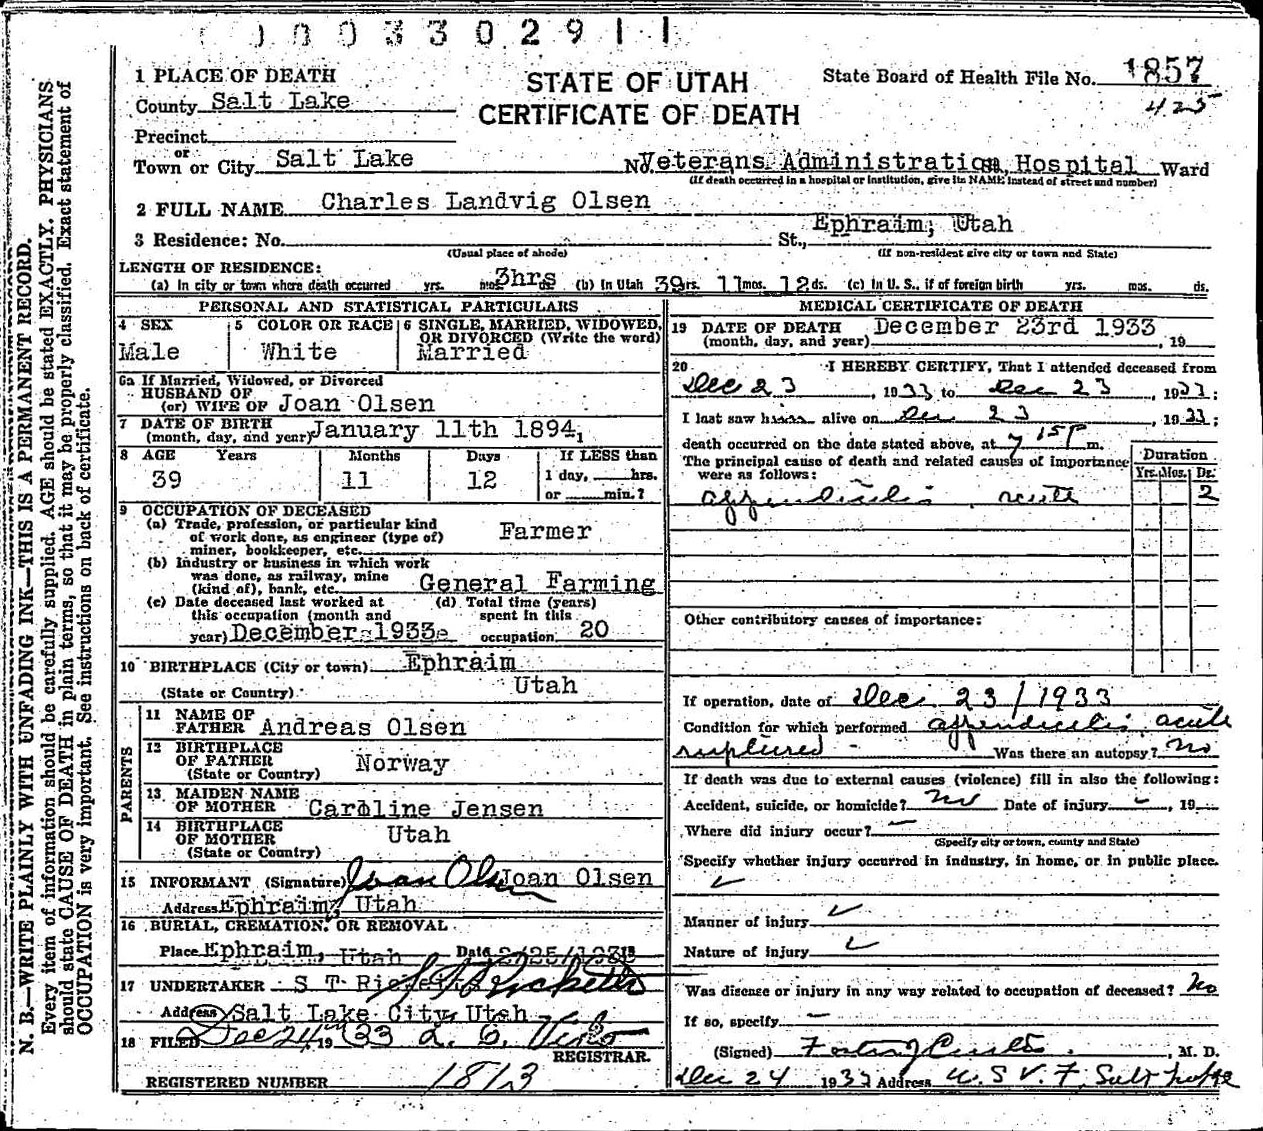 00330291 1
1 PLACE OF DEATH
County Salt Lake
Precinct
or
Town or City Salt Lake
STATE OF UTAH
CERTIFICATE OF DEATH
State Board of Health File No. 1857
425
No. Veterans Administration Hospital Ward
(If death occurred in a hospital or institution, give its NAME instead of street and number)
2 FULL NAME Charles Landvig Olsen
3 Residence: No. St., Ephraim, Utah
(Usual place of abode) (If non-resident give city or town and State)
LENGTH OF RESIDENCE:
(a) In city or town where death occurred yrs. mos. 3hrs ds. (b) In Utah 39 yrs. 11 mos. 12 ds. (c) In U. S., if of foreign birth yrs. mos. ds.
PERSONAL AND STATISTICAL PARTICULARS
4 SEX
Male
5 COLOR OR RACE
White
6 SINGLE, MARRIED, WIDOWED, OR DIVORCED (Write the word)
Married
6a If Married, Widowed, or Divorced
HUSBAND OF
(or) WIFE OF Joan Olsen
7 DATE OF BIRTH
(month, day, and year) January 11th 1894
8 AGE Years Months Days If LESS than
39 11 12 1 day, hrs.
or min.?
9 OCCUPATION OF DECEASED
(a) Trade, profession, or particular kind
of work done, as engineer (type of)
miner, bookkeeper, etc. Farmer
(b) Industry or business in which work
was done, as railway, mine
(kind of), bank, etc. General Farming
(c) Date deceased last worked at
this occupation (month and
year) December 1933
(d) Total time (years)
spent in this
occupation 20
10 BIRTHPLACE (City or town) Ephraim
(State or Country) Utah
PARENTS
11 NAME OF
FATHER Andreas Olsen
12 BIRTHPLACE
OF FATHER Norway
(State or Country)
13 MAIDEN NAME
OF MOTHER Caroline Jensen
14 BIRTHPLACE
OF MOTHER Utah
(State or Country)
15 INFORMANT (Signature) Joan Olsen Joan Olsen
Address Ephraim, Utah
16 BURIAL, CREMATION, OR REMOVAL
Place Ephraim, Utah Date
17 UNDERTAKER S T Ricketts
Address Salt Lake City, Utah
18 FILED Dec 24 1933
REGISTRAR.
REGISTERED NUMBER 1813
MEDICAL CERTIFICATE OF DEATH
19 DATE OF DEATH December 23rd 1933
(month, day, and year) , 19
20 I HEREBY CERTIFY, That I attended deceased from
Dec 23, 1933 to Dec 23, 1933;
I last saw him alive on Dec 23, 1933;
death occurred on the date stated above, at 7 15P m.
The principal cause of death and related causes of importance
were as follows:
Duration
Yrs. Mos. Ds.
appendicitis acute 2
Other contributory causes of importance:
If operation, date of Dec 23/1933
Condition for which performed appendicitis, acute
ruptured - Was there an autopsy? No
If death was due to external causes (violence) fill in also the following:
Accident, suicide, or homicide? No Date of injury , 19
Where did injury occur?
(Specify city or town, county and State)
Specify whether injury occurred in industry, in home, or in public place.
Manner of injury
Nature of injury
Was disease or injury in any way related to occupation of deceased? No
If so, specify
(Signed) , M. D.
Dec 24 1933 Address U. S V. F. Salt Lake
N. B.—WRITE PLAINLY WITH UNFADING INK—THIS IS A PERMANENT RECORD.
Every item of information should be carefully supplied. AGE should be stated EXACTLY. PHYSICIANS
should state CAUSE OF DEATH in plain terms, so that it may be properly classified. Exact statement of
OCCUPATION is very important. See instructions on back of certificate.